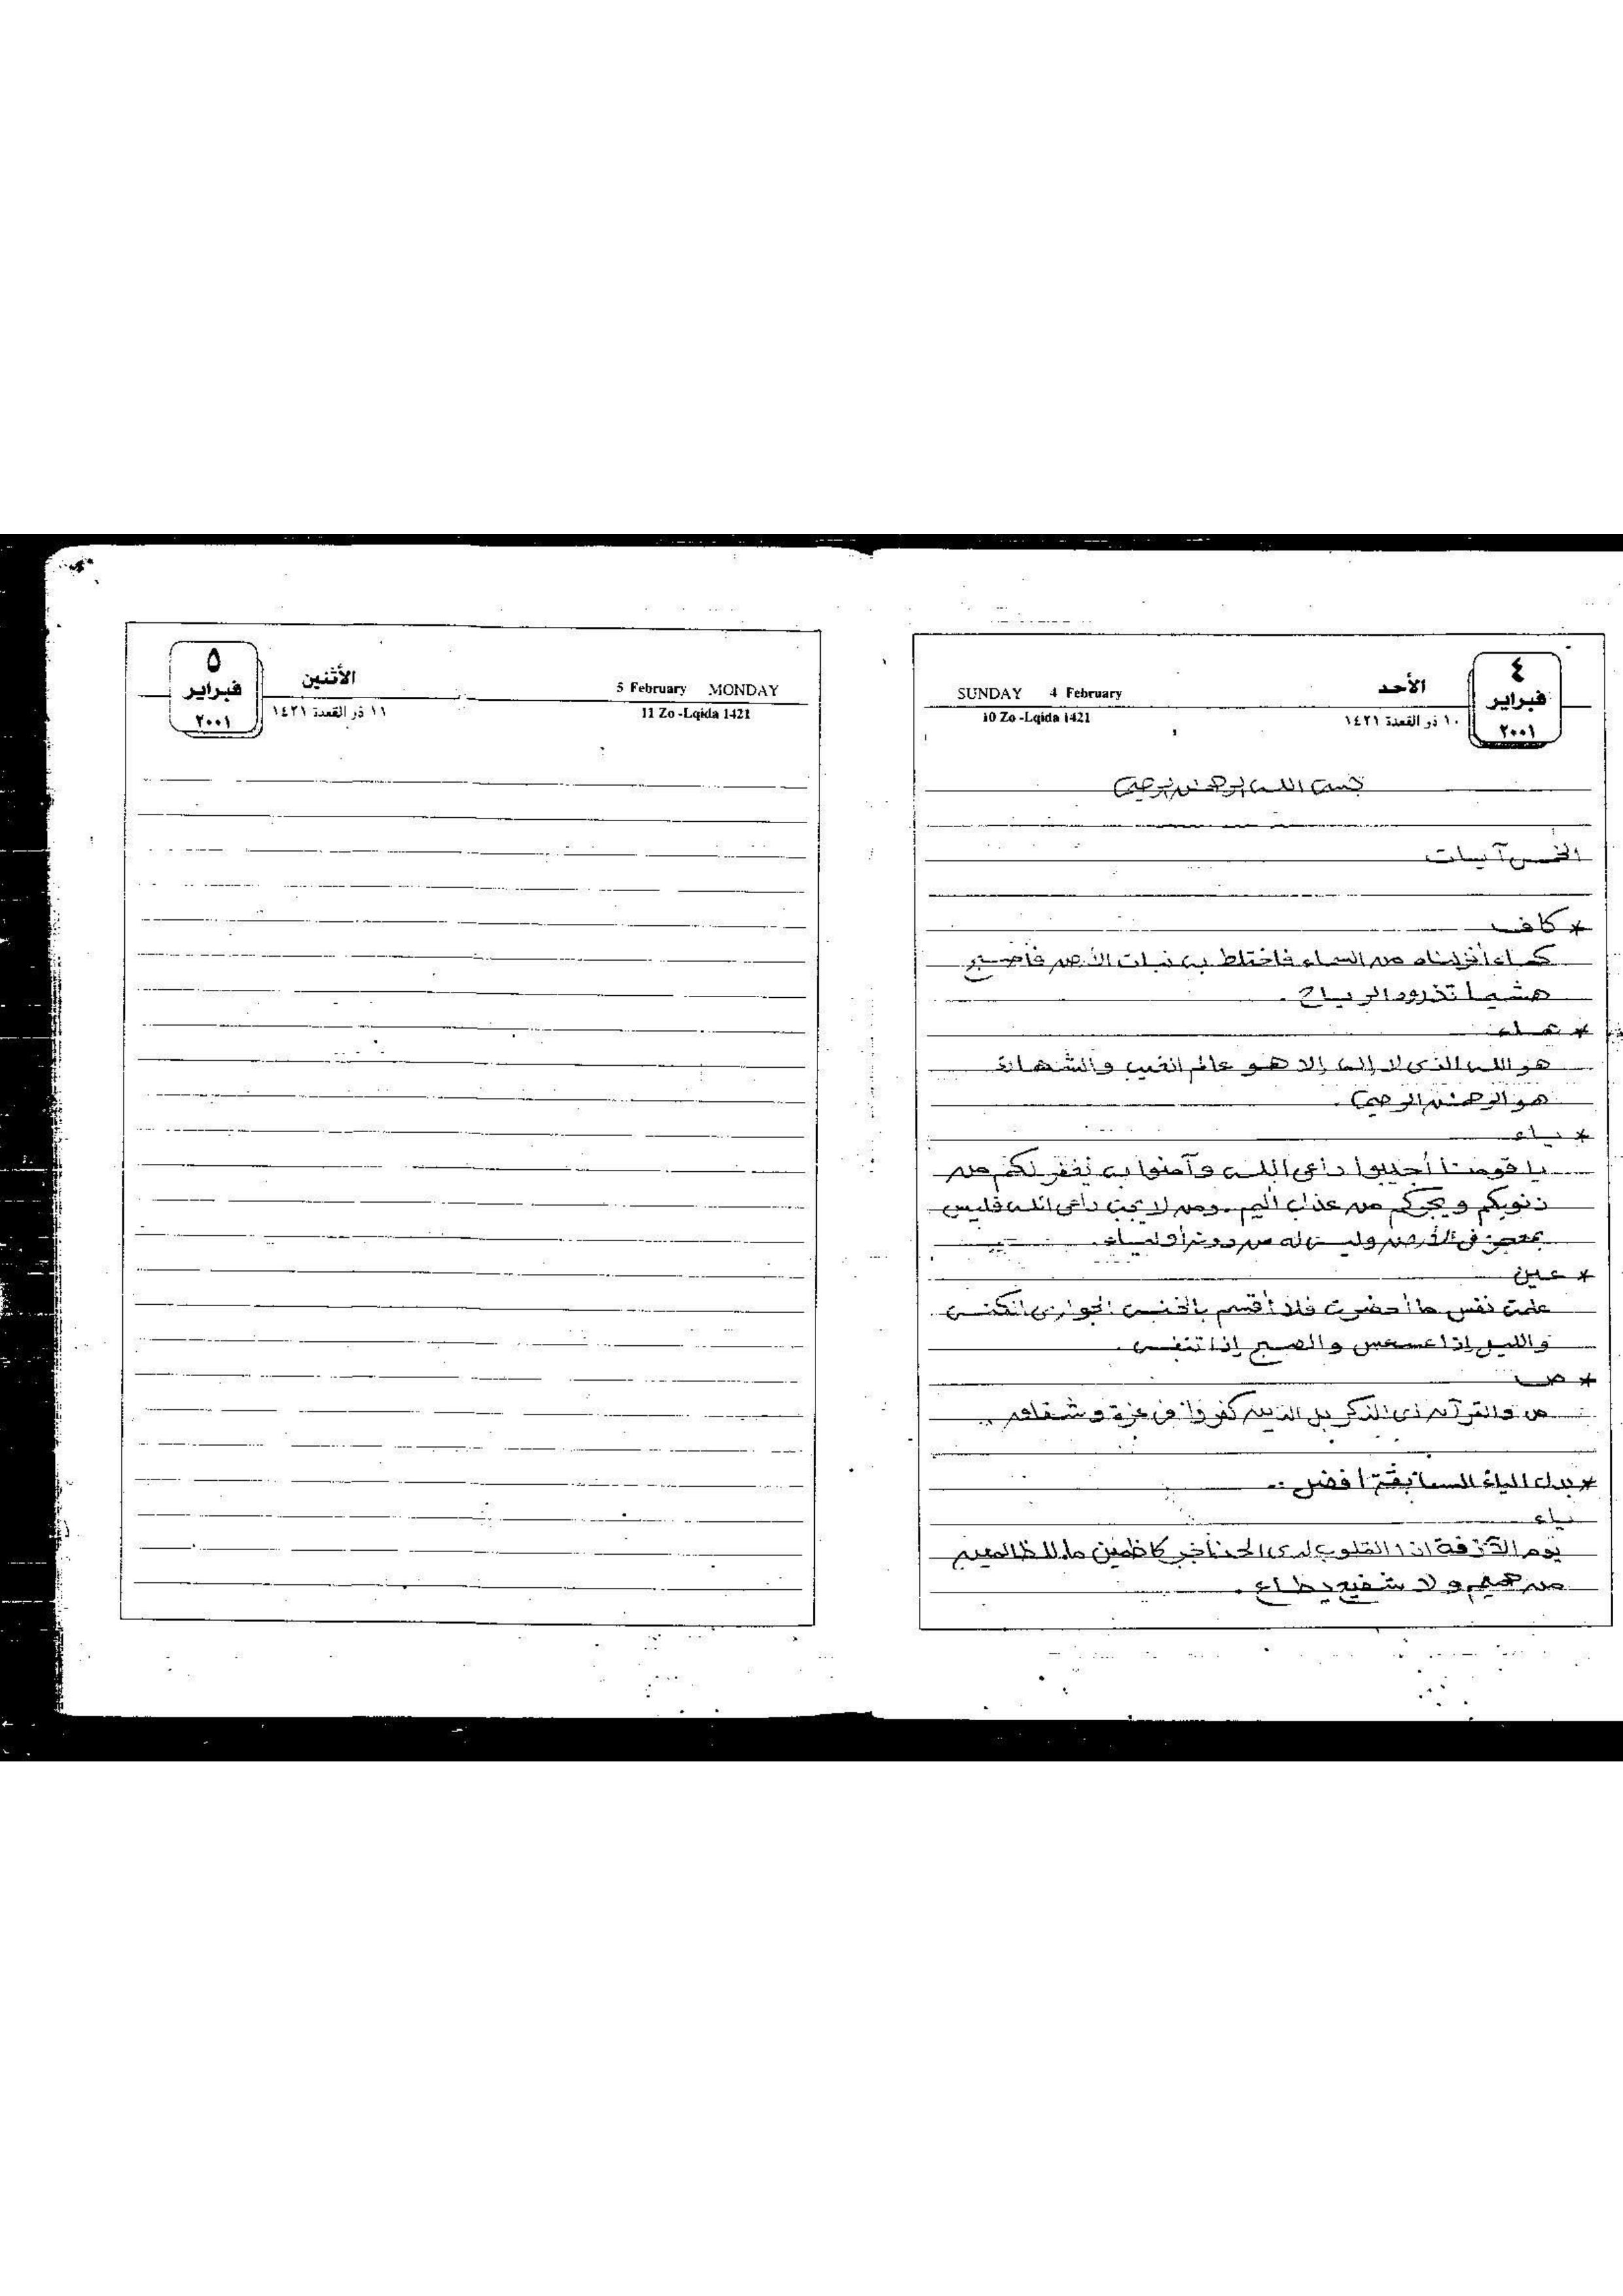 ٤
فبراير
٢٠٠١
الأحد
١٠ ذو القعدة ١٤٢١
SUNDAY 4 February
10 Zo -Lqida 1421
بسم الله الرحمن الرحيم
الخمس آيات
* كاف
كماء أنزلناه من السماء فاختلط به نبات الأرض فأصبح
هشيما تذروه الرياح .
* هاء
هو الله الذى لا إله إلا هو عالم الغيب والشهادة
هو الرحمن الرحيم .
* ياء
يا قومنا أجيبوا داعى الله وآمنوا به يغفر لكم من
ذنوبكم ويجركم من عذاب أليم . ومن لا يجب داعى الله فليس
بمعجز فى الأرض وليس له من دونه أولياء .
* عين
علمت نفس ما أحضرت فلا أقسم بالخنس الجوارى الكنس
والليل إذا عسعس والصبح إذا تنفس .
* ص
ص والقرآن ذى الذكر بل الذين كفروا فى عزة وشقاق ..
* بدل الياء السابقة أفضل ..
ياء
يوم الآزفة اذا القلوب لدى الحناجر كاظمين ما للظالمين
من حميم ولا شفيع يطاع .
٥
فبراير
٢٠٠١
الأثنين
١١ ذو القعدة ١٤٢١
5 February MONDAY
11 Zo -Lqida 1421